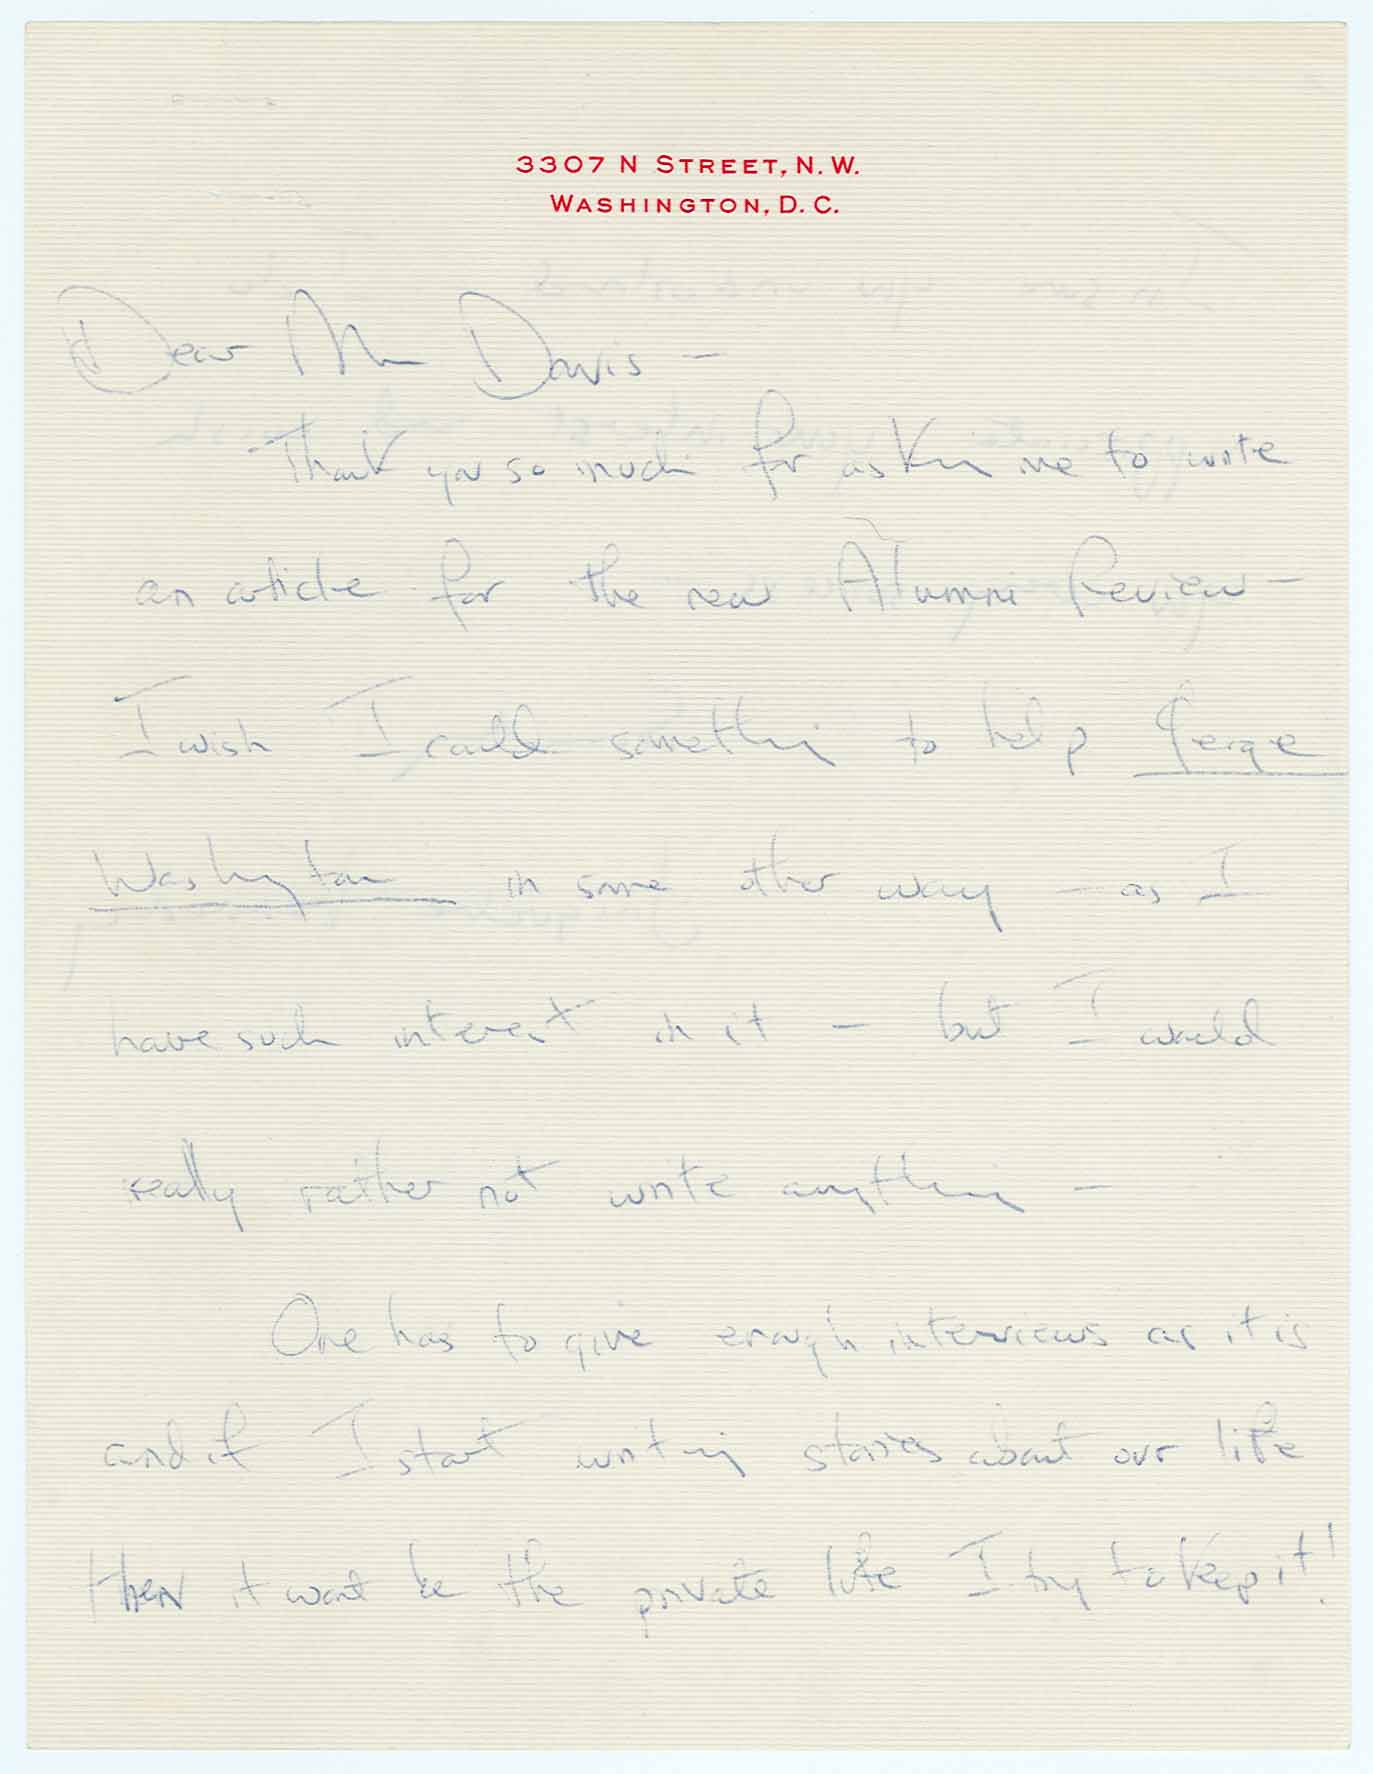 3307 N STREET, N. W.
WASHINGTON, D. C.
Dear Mr Davis —
Thank you so much for asking me to write
an article for the new Alumni Review —
I wish I could something to help George
Washington in some other way — as I
have such interest in it — but I would
really rather not write anything —
One has to give enough interviews as it is
and if I start writing stories about our life
then it wont be the private life I try to keep it!